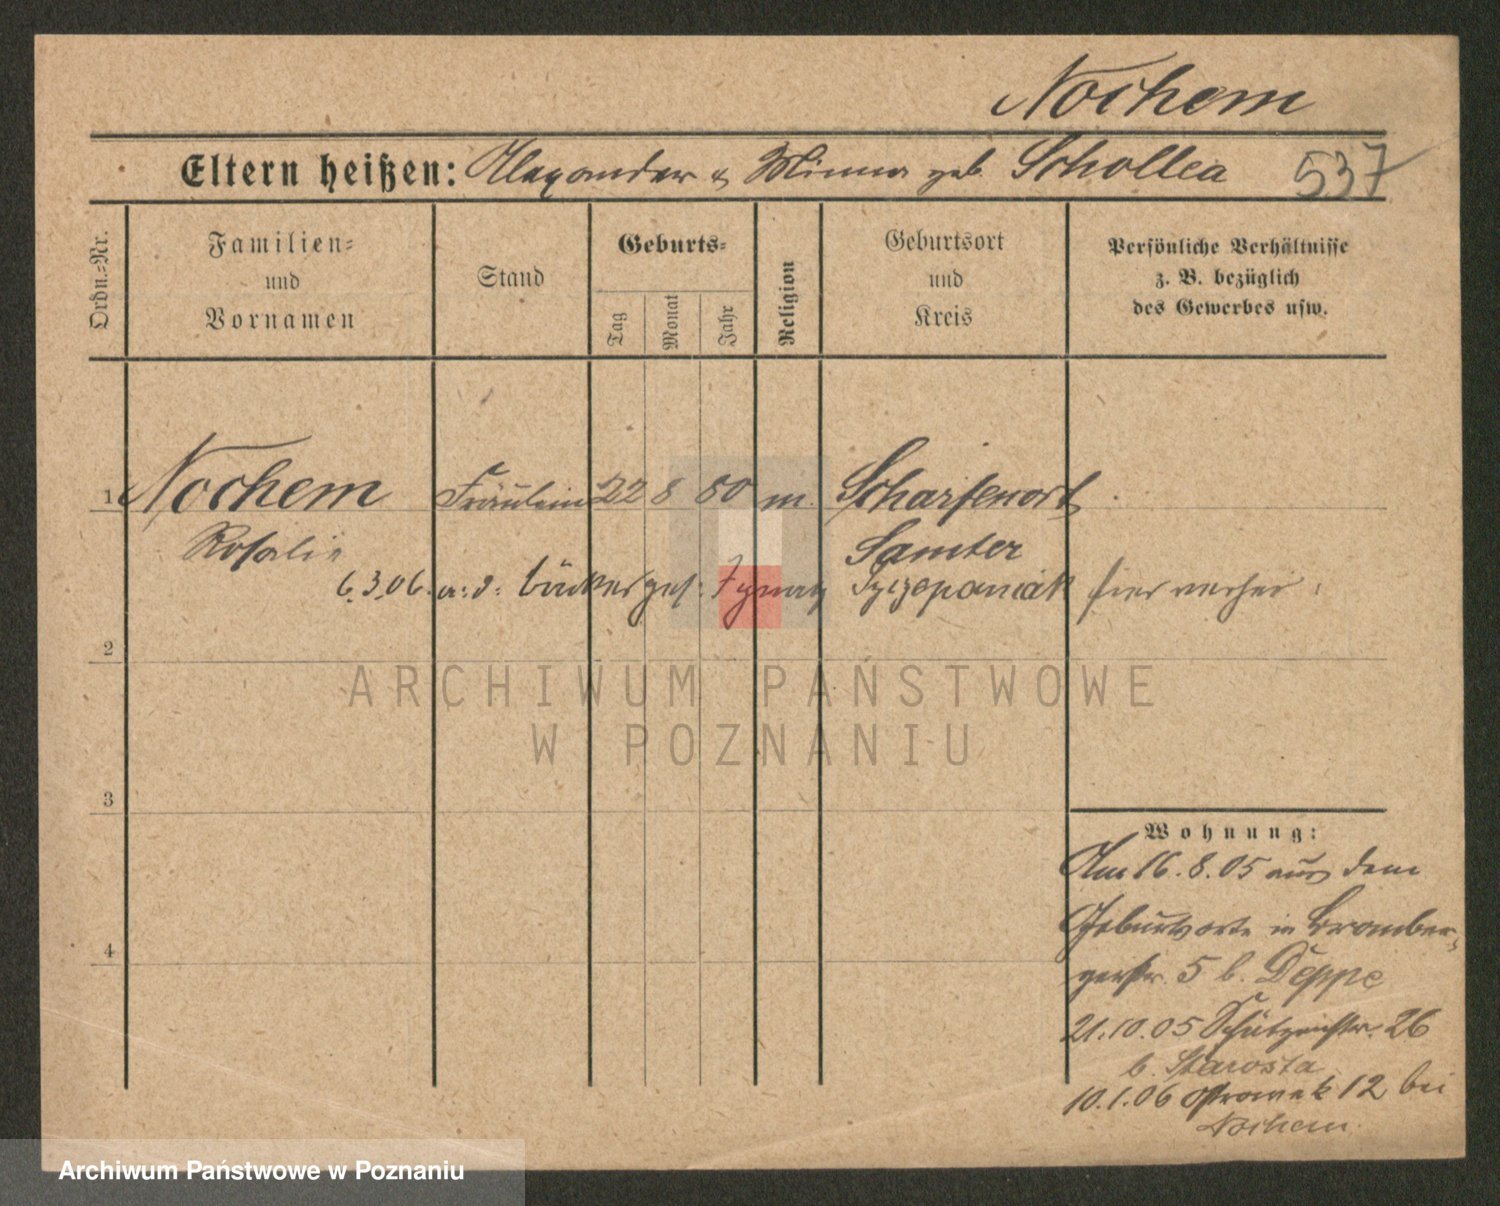 Nochem
Eltern heißen: Alexander & Minna geb. Schollea 537
Ordn.-Nr.
Familien- und Vornamen
Stand
Geburts-
Tag
Monat
Jahr
Religion
Geburtsort und Kreis
Persönliche Verhältnisse z. B. bezüglich des Gewerbes usw.
1 Nochem Fräulein 22 8 80 m. Scharfenort
Rosalie Samter
6.3.06. a. d. Bäckerges. Ignatz Szczepaniak hier verhei.
2
ARCHIWUM PAŃSTWOWE
W POZNANIU
3
Wohnung:
Am 16.8.05 aus dem
4
Geburtsorte in Bromber-
gerstr. 5 b. Deppe
21.10.05 Schützenstr. 26
b. Starosta
10.1.06 Ostrowek 12 bei
Nochem
Archiwum Państwowe w Poznaniu